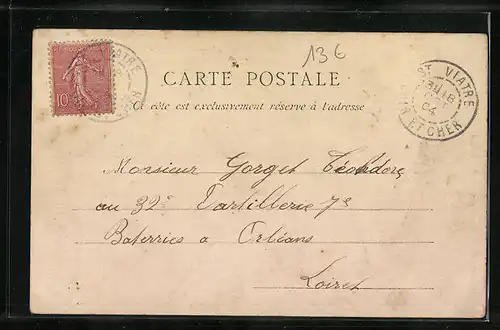 13€
CARTE POSTALE
Ce côté est exclusivement réservé à l'adresse
10
VIATRE
ST VIATRE
18
04
ET CHER
Monsieur Gorget Téondore
au 32e d'artillerie 7e
Baterries a Orléans
Loiret